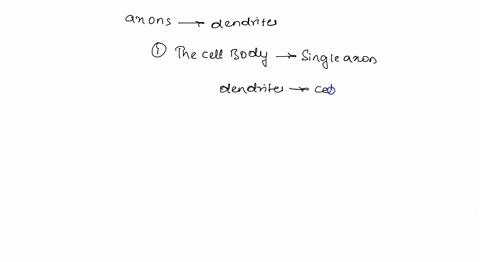 axons → dendrites
① The cell Body → Single axon
dendrites → cel